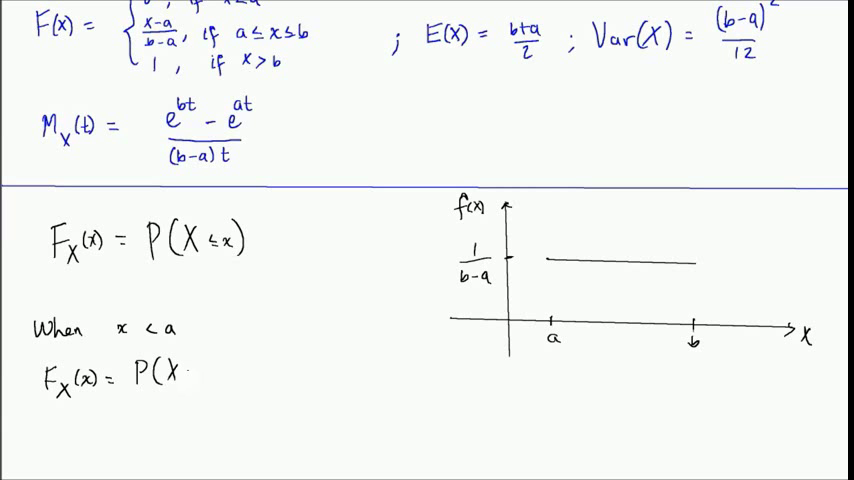 F(x) = { x-a/b-a, if a ≤ x ≤ b
1, if x > b
; E(X) = b+a/2 ; Var(X) = (b-a)²/12
M_X(t) = e^bt - e^at / (b-a)t
F_X(x) = P(X ≤ x)
When x < a
F_X(x) = P(X
f(x)
1/b-a
a
b
X